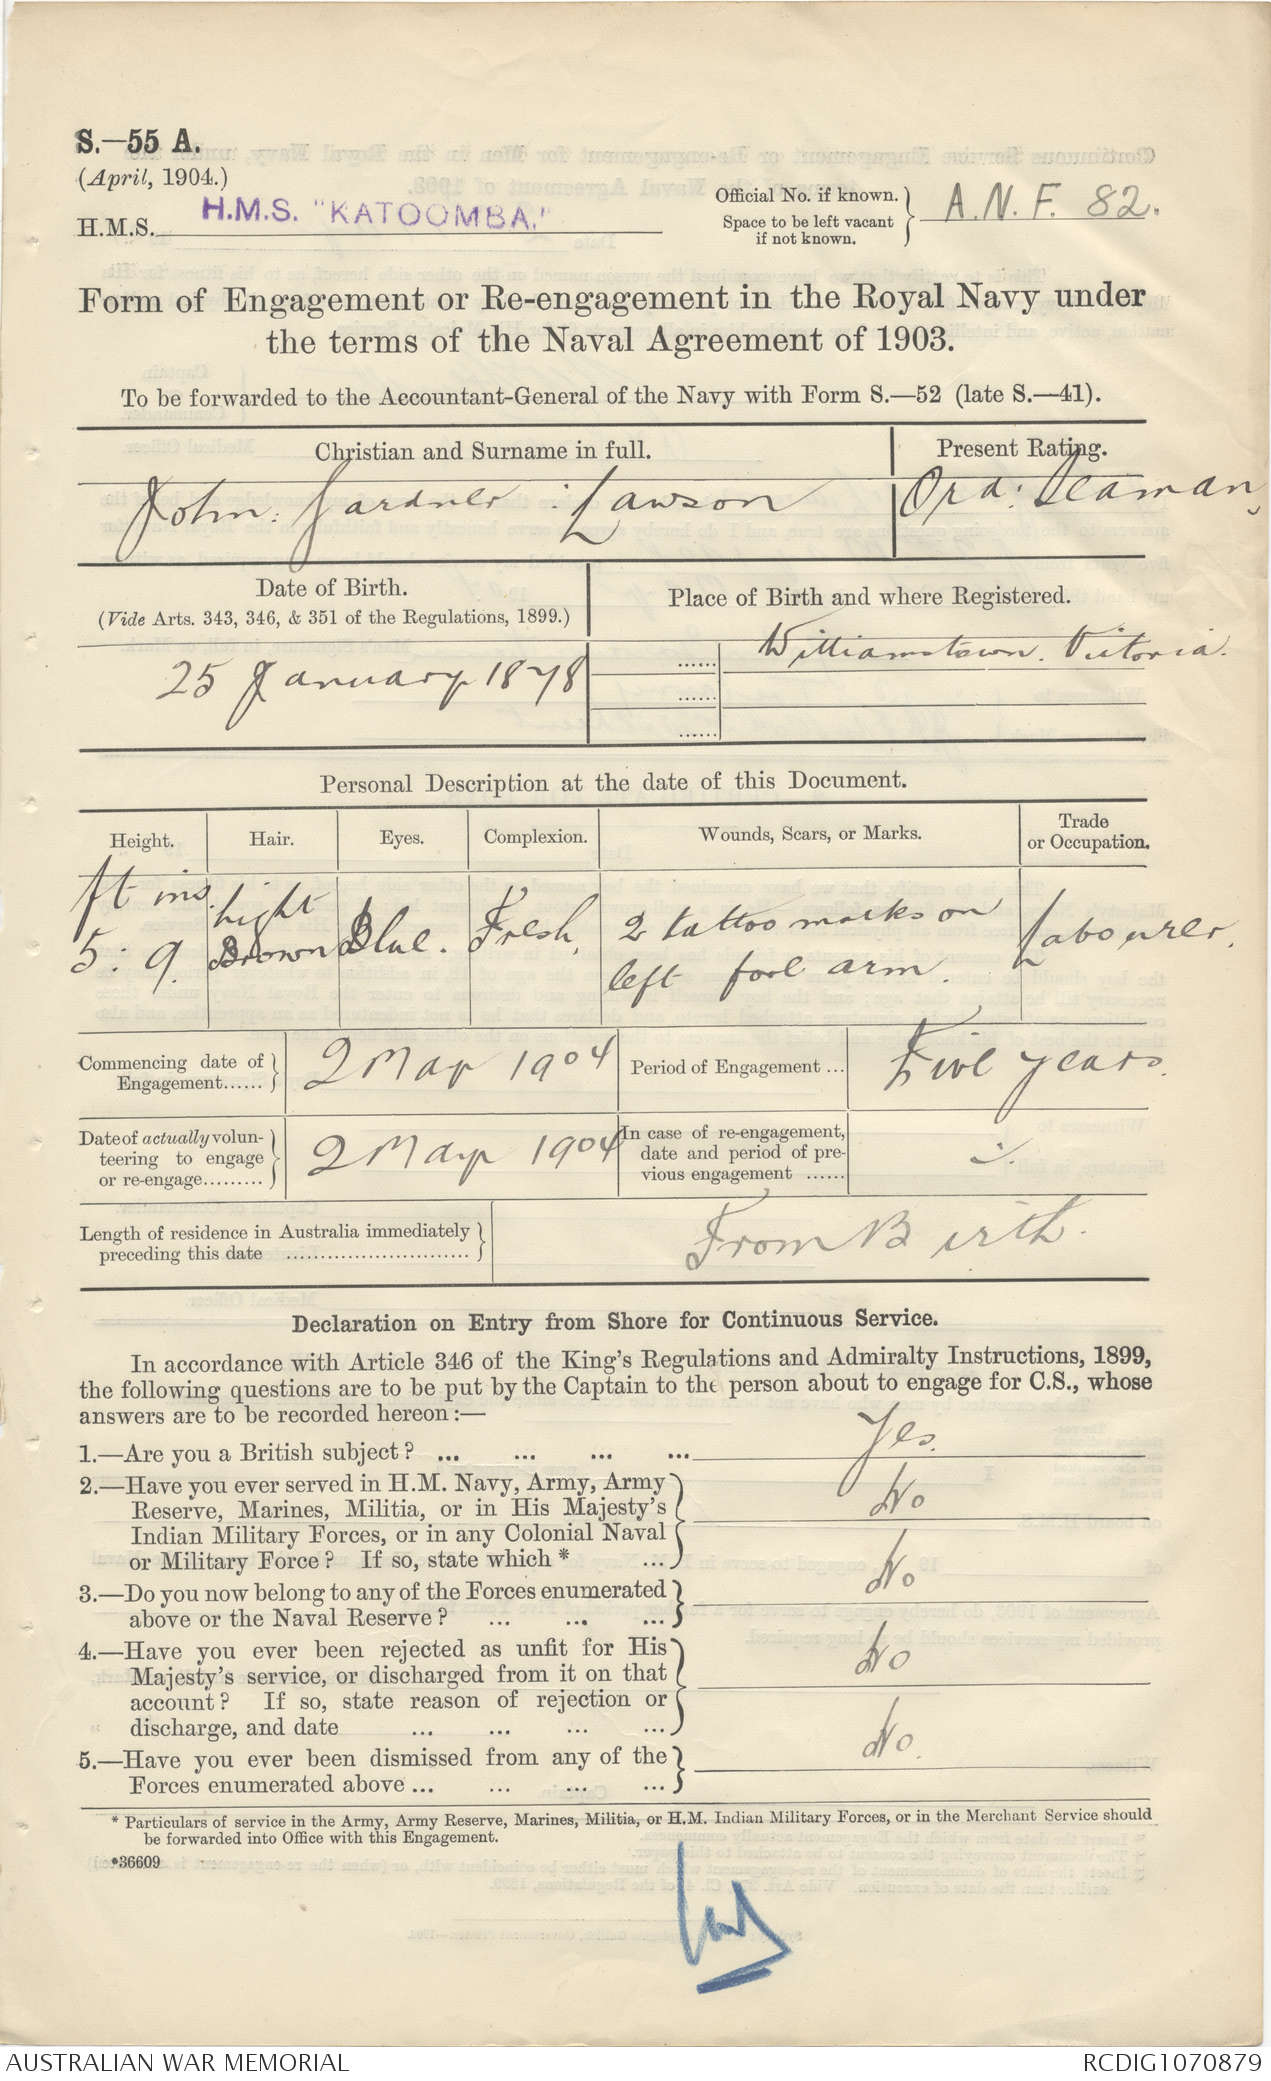 S.—55 A.
(April, 1904.)
H.M.S. H.M.S. "KATOOMBA."
Official No. if known.
Space to be left vacant
if not known.
A.N.F. 82.
Form of Engagement or Re-engagement in the Royal Navy under
the terms of the Naval Agreement of 1903.
To be forwarded to the Accountant-General of the Navy with Form S.—52 (late S.—41).
Christian and Surname in full.
Present Rating.
John: Gardner: Lawson
Ord: Seaman
Date of Birth.
(Vide Arts. 343, 346, & 351 of the Regulations, 1899.)
Place of Birth and where Registered.
25 January 1878
Williamstown. Victoria.
Personal Description at the date of this Document.
Height.
Hair.
Eyes.
Complexion.
Wounds, Scars, or Marks.
Trade
or Occupation.
ft ins.
5: 9.
light
Brown
Blue.
Fresh,
2 tattoo marks on
left fore arm.
Labourer.
Commencing date of
Engagement......
2 May 1904
Period of Engagement ...
Five years.
Date of actually volun-
teering to engage
or re-engage.........
2 May 1904
In case of re-engagement,
date and period of pre-
vious engagement ......
Length of residence in Australia immediately
preceding this date ............................
From Birth.
Declaration on Entry from Shore for Continuous Service.
In accordance with Article 346 of the King's Regulations and Admiralty Instructions, 1899,
the following questions are to be put by the Captain to the person about to engage for C.S., whose
answers are to be recorded hereon:—
1.—Are you a British subject? ... ... ... ...
Yes.
2.—Have you ever served in H.M. Navy, Army, Army
Reserve, Marines, Militia, or in His Majesty's
Indian Military Forces, or in any Colonial Naval
or Military Force? If so, state which * ...
No
3.—Do you now belong to any of the Forces enumerated
above or the Naval Reserve? ... ... ...
No
4.—Have you ever been rejected as unfit for His
Majesty's service, or discharged from it on that
account? If so, state reason of rejection or
discharge, and date ... ... ... ...
No
5.—Have you ever been dismissed from any of the
Forces enumerated above ... ... ... ...
No.
* Particulars of service in the Army, Army Reserve, Marines, Militia, or H.M. Indian Military Forces, or in the Merchant Service should
be forwarded into Office with this Engagement.
*36609
AUSTRALIAN WAR MEMORIAL
RCDIG1070879